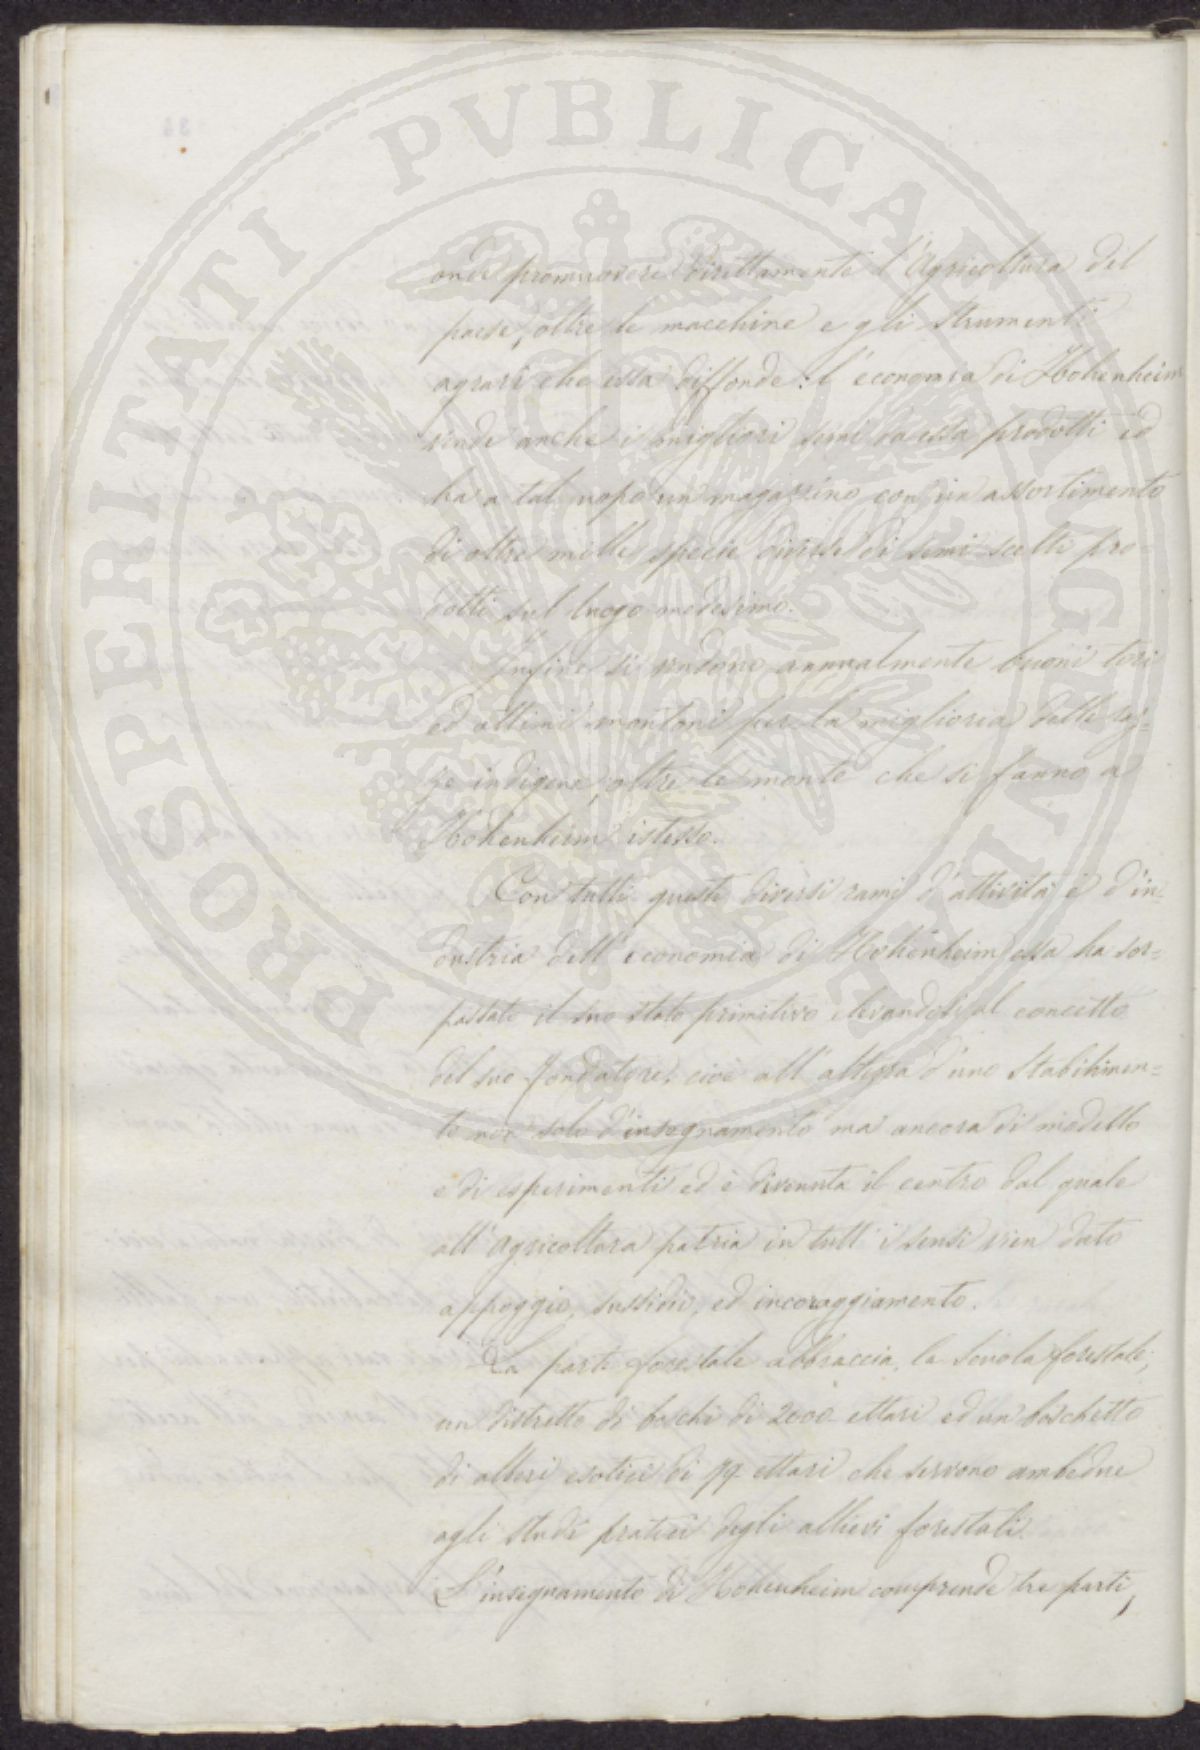 PROSPERITATI PVBLICAE AVGENDAE
onde promuovere direttamente l'Agricoltura del
paese, oltre le macchine e gli strumenti
agrari che essa diffonde: l'economia di Hohenheim
vende anche i migliori semi da essa prodotti ed
ha a tal uopo un magazzino con un assortimento
di oltre mille specie diverse di semi scelti pro-
dotti sul luogo medesimo.
Infine si vendono annualmente buoni tori
ed ottimi montoni per la miglioria delle raz-
ze indigene, oltre le monte che si fanno a
Hohenheim istesso.
Con tutti questi diversi rami d'attività e d'in-
dustria dell'economia di Hohenheim essa ha sor=
passato il suo stato primitivo elevandosi al concetto
del suo fondatore, cioè all'altezza d'uno Stabilimen=
to non solo d'insegnamento ma ancora di modello
e di esperimenti ed è divenuta il centro dal quale
all'Agricoltura patria in tutt'i sensi vien dato
appoggio, sussidio, ed incoraggiamento.
La parte forestale abbraccia, la Scuola forestale,
un distretto di boschi di 2000 ettari ed un boschetto
di alberi esotici di ettari che servono ambedue
agli studi pratici degli allievi forestali.
L'insegnamento di Hohenheim comprende tre parti,